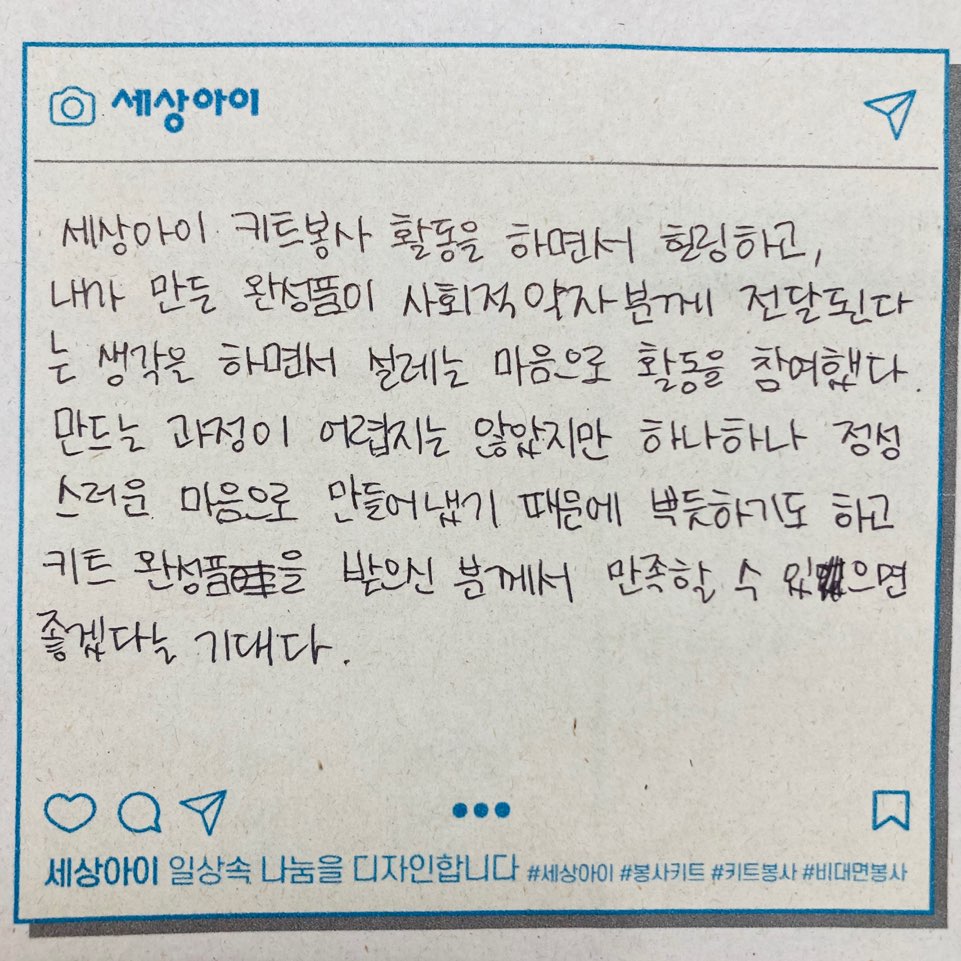 세상아이
세상아이 키트봉사 활동을 하면서 힐링하고,
내가 만든 완성품이 사회적약자분께 전달된다
는 생각을 하면서 설레는 마음으로 활동을 참여했다.
만드는 과정이 어렵지는 않았지만 하나하나 정성
스러운 마음으로 만들어냈기 때문에 뿌듯하기도 하고
키트 완성품을 받으신 분께서 만족할 수 있으면
좋겠다는 기대다.
세상아이 일상속 나눔을 디자인합니다 #세상아이 #봉사키트 #키트봉사 #비대면봉사